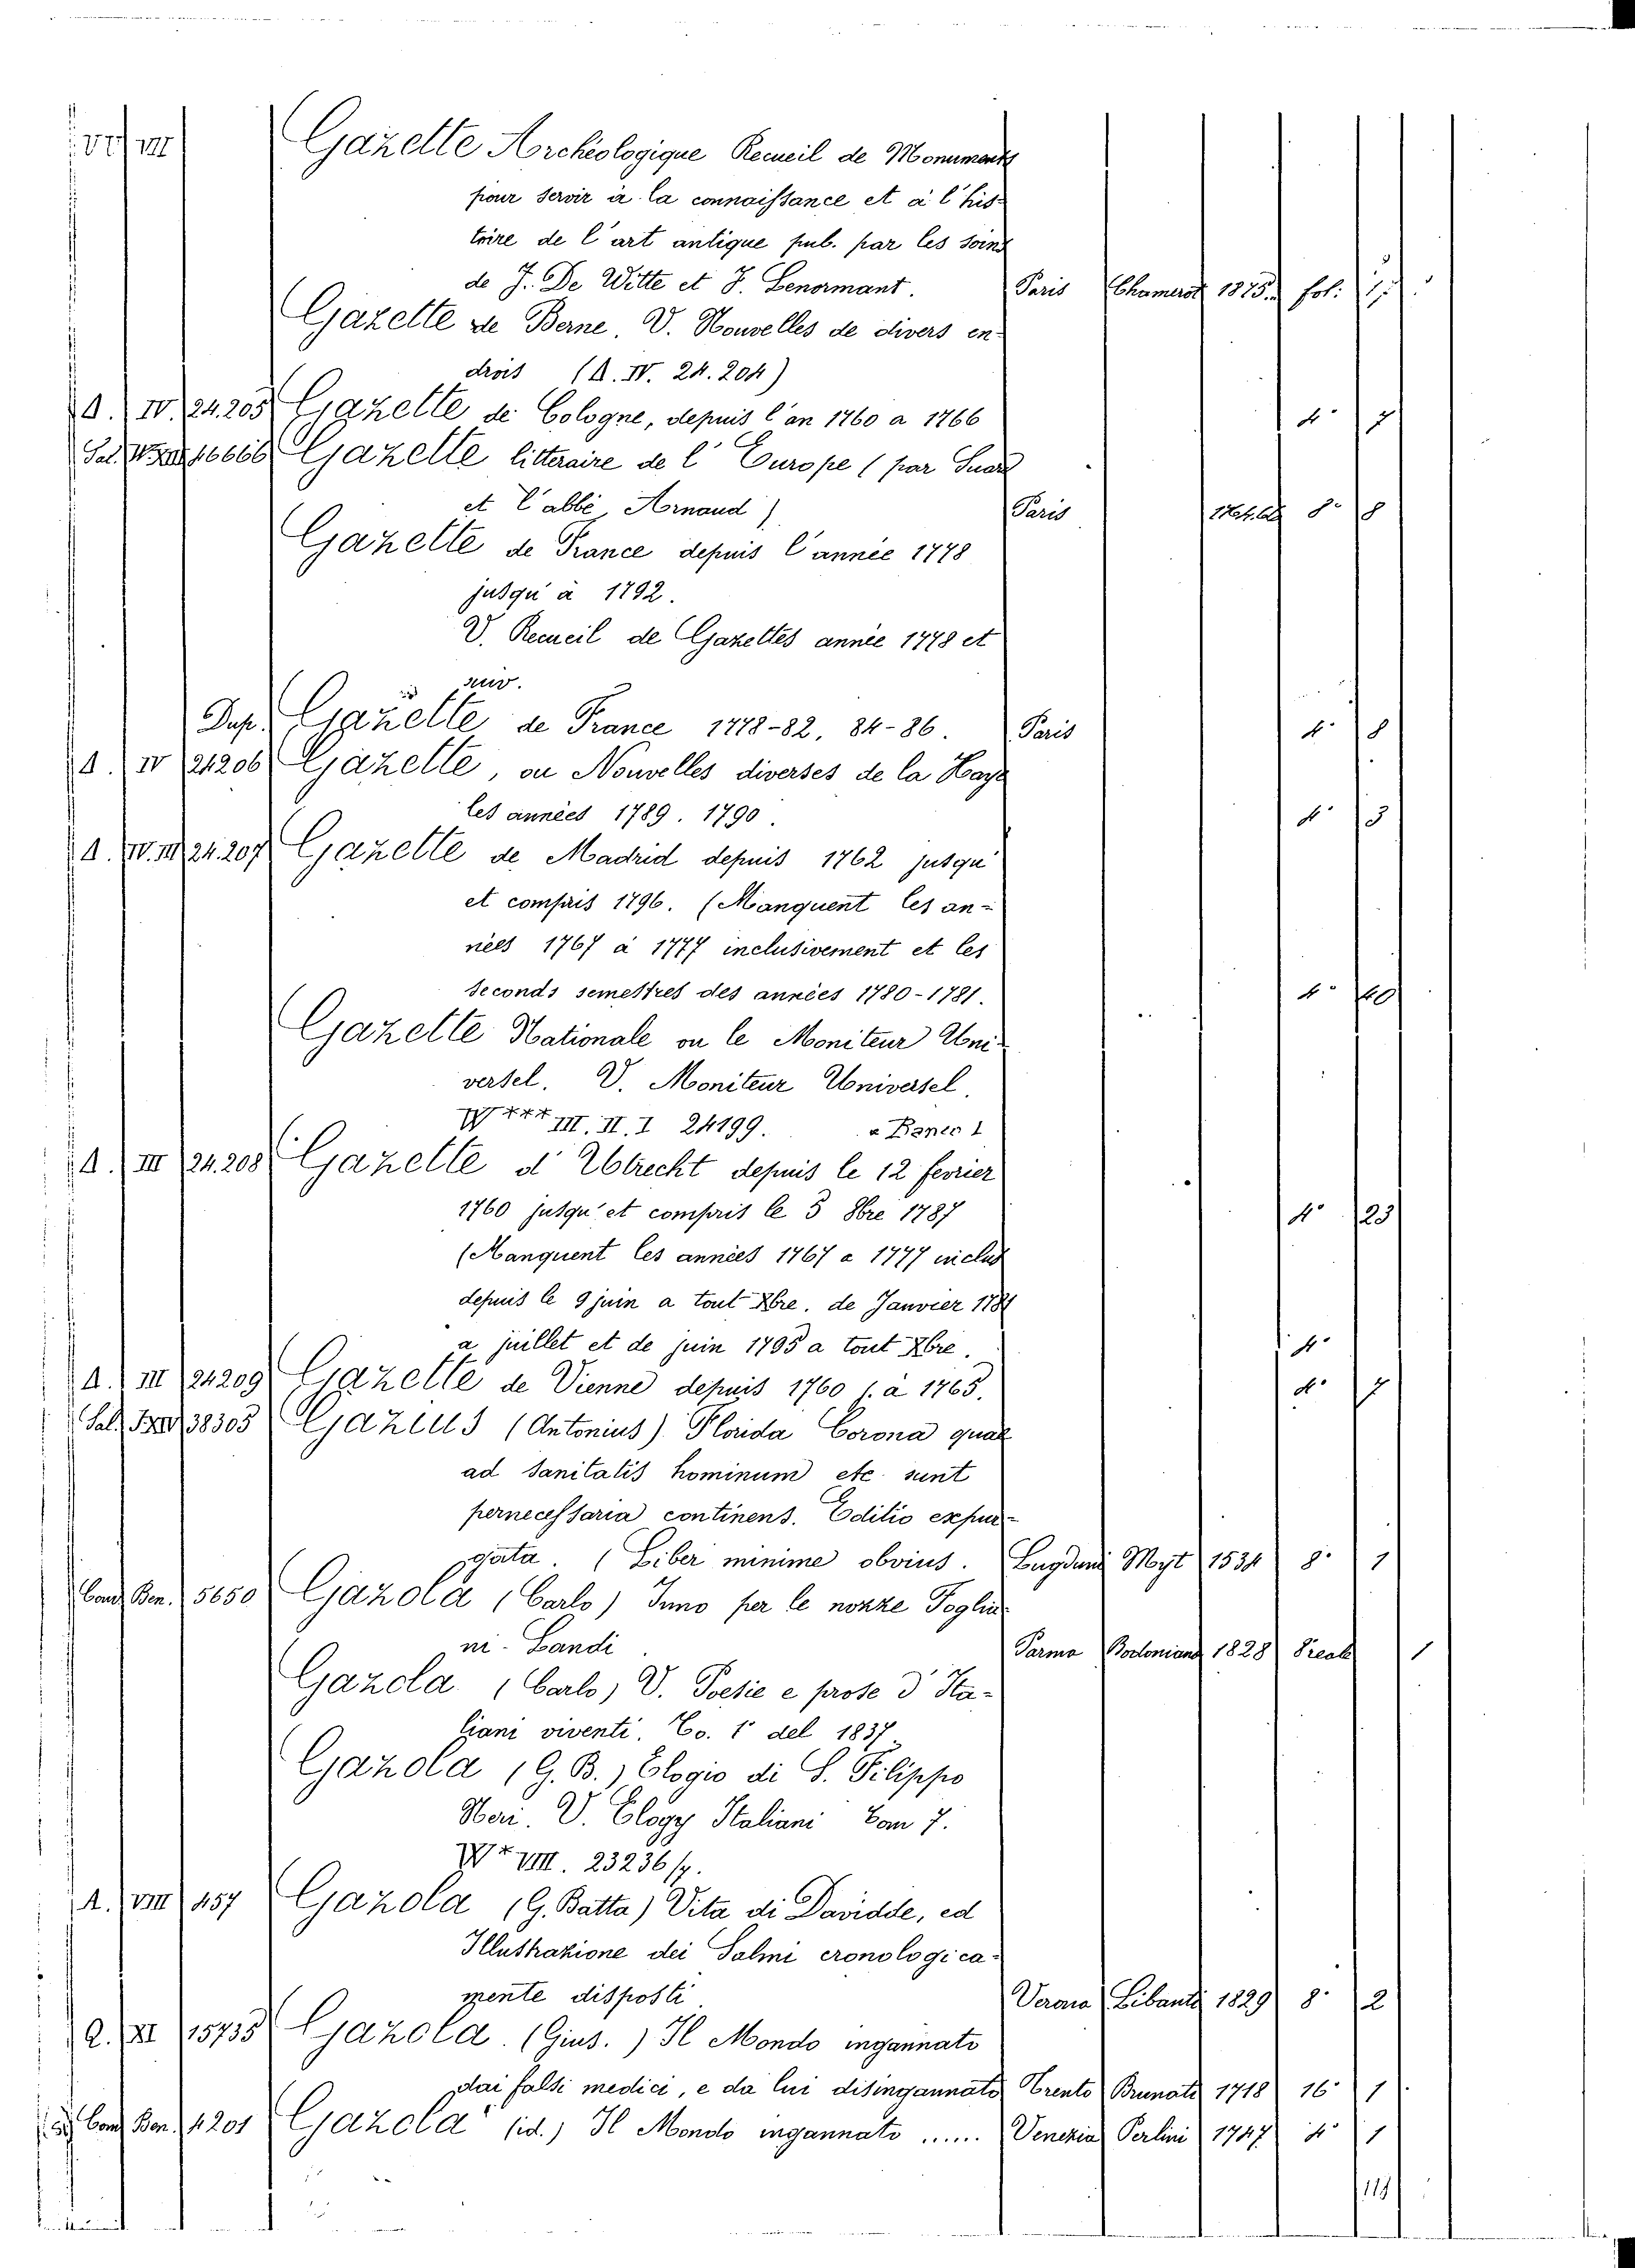 VIII Gazette Archéologique Recueil de Monuments
pour servir à la connaissance et à l'his-
toire de l'art antique pub. par les soins
de J. De Witte et F. Lenormant. Paris Chamerot 1875. fol: 17
Gazette de Berne. V. Nouvelles de divers en-
drois (A. IV. 24.204)
A. IV. 24.205 Gazette de Cologne, depuis l'an 1760 a 1766 4° 7
Sal. 16666 Gazette litteraire de l'Europe (par Suard
et l'abbé Arnaud) Paris 8° 8
Gazette de France depuis l'année 1778
jusqu'à 1792.
V. Recueil de Gazettes année 1778 et
suiv.
Dup. Gazette de France 1778-82, 84-86. Paris 4° 8
A. IV 24206 Gazette, ou Nouvelles diverses de la Haye
les années 1789. 1790. 4° 3
A. IV. III 24.207 Gazette de Madrid depuis 1762 jusqu'
et compris 1796. (Manquent les an-
nées 1767 à 1777 inclusivement et les
seconds semestres des années 1780-1781. 4° 40
Gazette Nationale ou le Moniteur Uni-
versel. V. Moniteur Universel.
W*** III. II. I 24199. a Banco 1
A. III 24.208 Gazette d'Utrecht depuis le 12 fevrier
1760 jusqu'et compris le 5 8bre 1787 4° 23
(Manquent les années 1767 a 1777 inclus
depuis le 9 juin a tout Xbre. de Janvier 1781
a juillet et de juin 1795 a tout Xbre. 4°
A. III 24209 Gazette de Vienne depuis 1760 j. à 1765. 4° 7
Sal. 38305 Gazius (Antonius) Florida Corona quae
ad sanitatis hominum etc sunt
pernecessaria continens. Editio expur-
gata. (Liber minime obvius. Lugduni Myt 1534 8° 1
Cand. Ben. 5650 Gazola (Carlo) Inno per le nozze Foglia-
ni-Landi Parma Bodoniana 1828 Reale 1
Gazola (Carlo) V. Poesie e prose d'Ita-
liani viventi. To. 1° del 1837.
Gazola (G. B.) Elogio di S. Filippo
Neri. V. Elogy Italiani Tom 7.
W* VIII. 23236/7.
A. VIII 457 Gazola (G. Batta) Vita di Davidde, ed
Illustrazione dei Salmi cronologica-
mente disposti Verona Libanti 1829 8° 2
Q. XI 15735 Gazola. (Gius.) Il Mondo ingannato
dai falsi medici, e da lui disingannato Trento Brunati 1718 16° 1
Cand. Ben. 4201 Gazola (id.) Il Mondo ingannato ..... Venezia Perlini 1747 4° 1
119